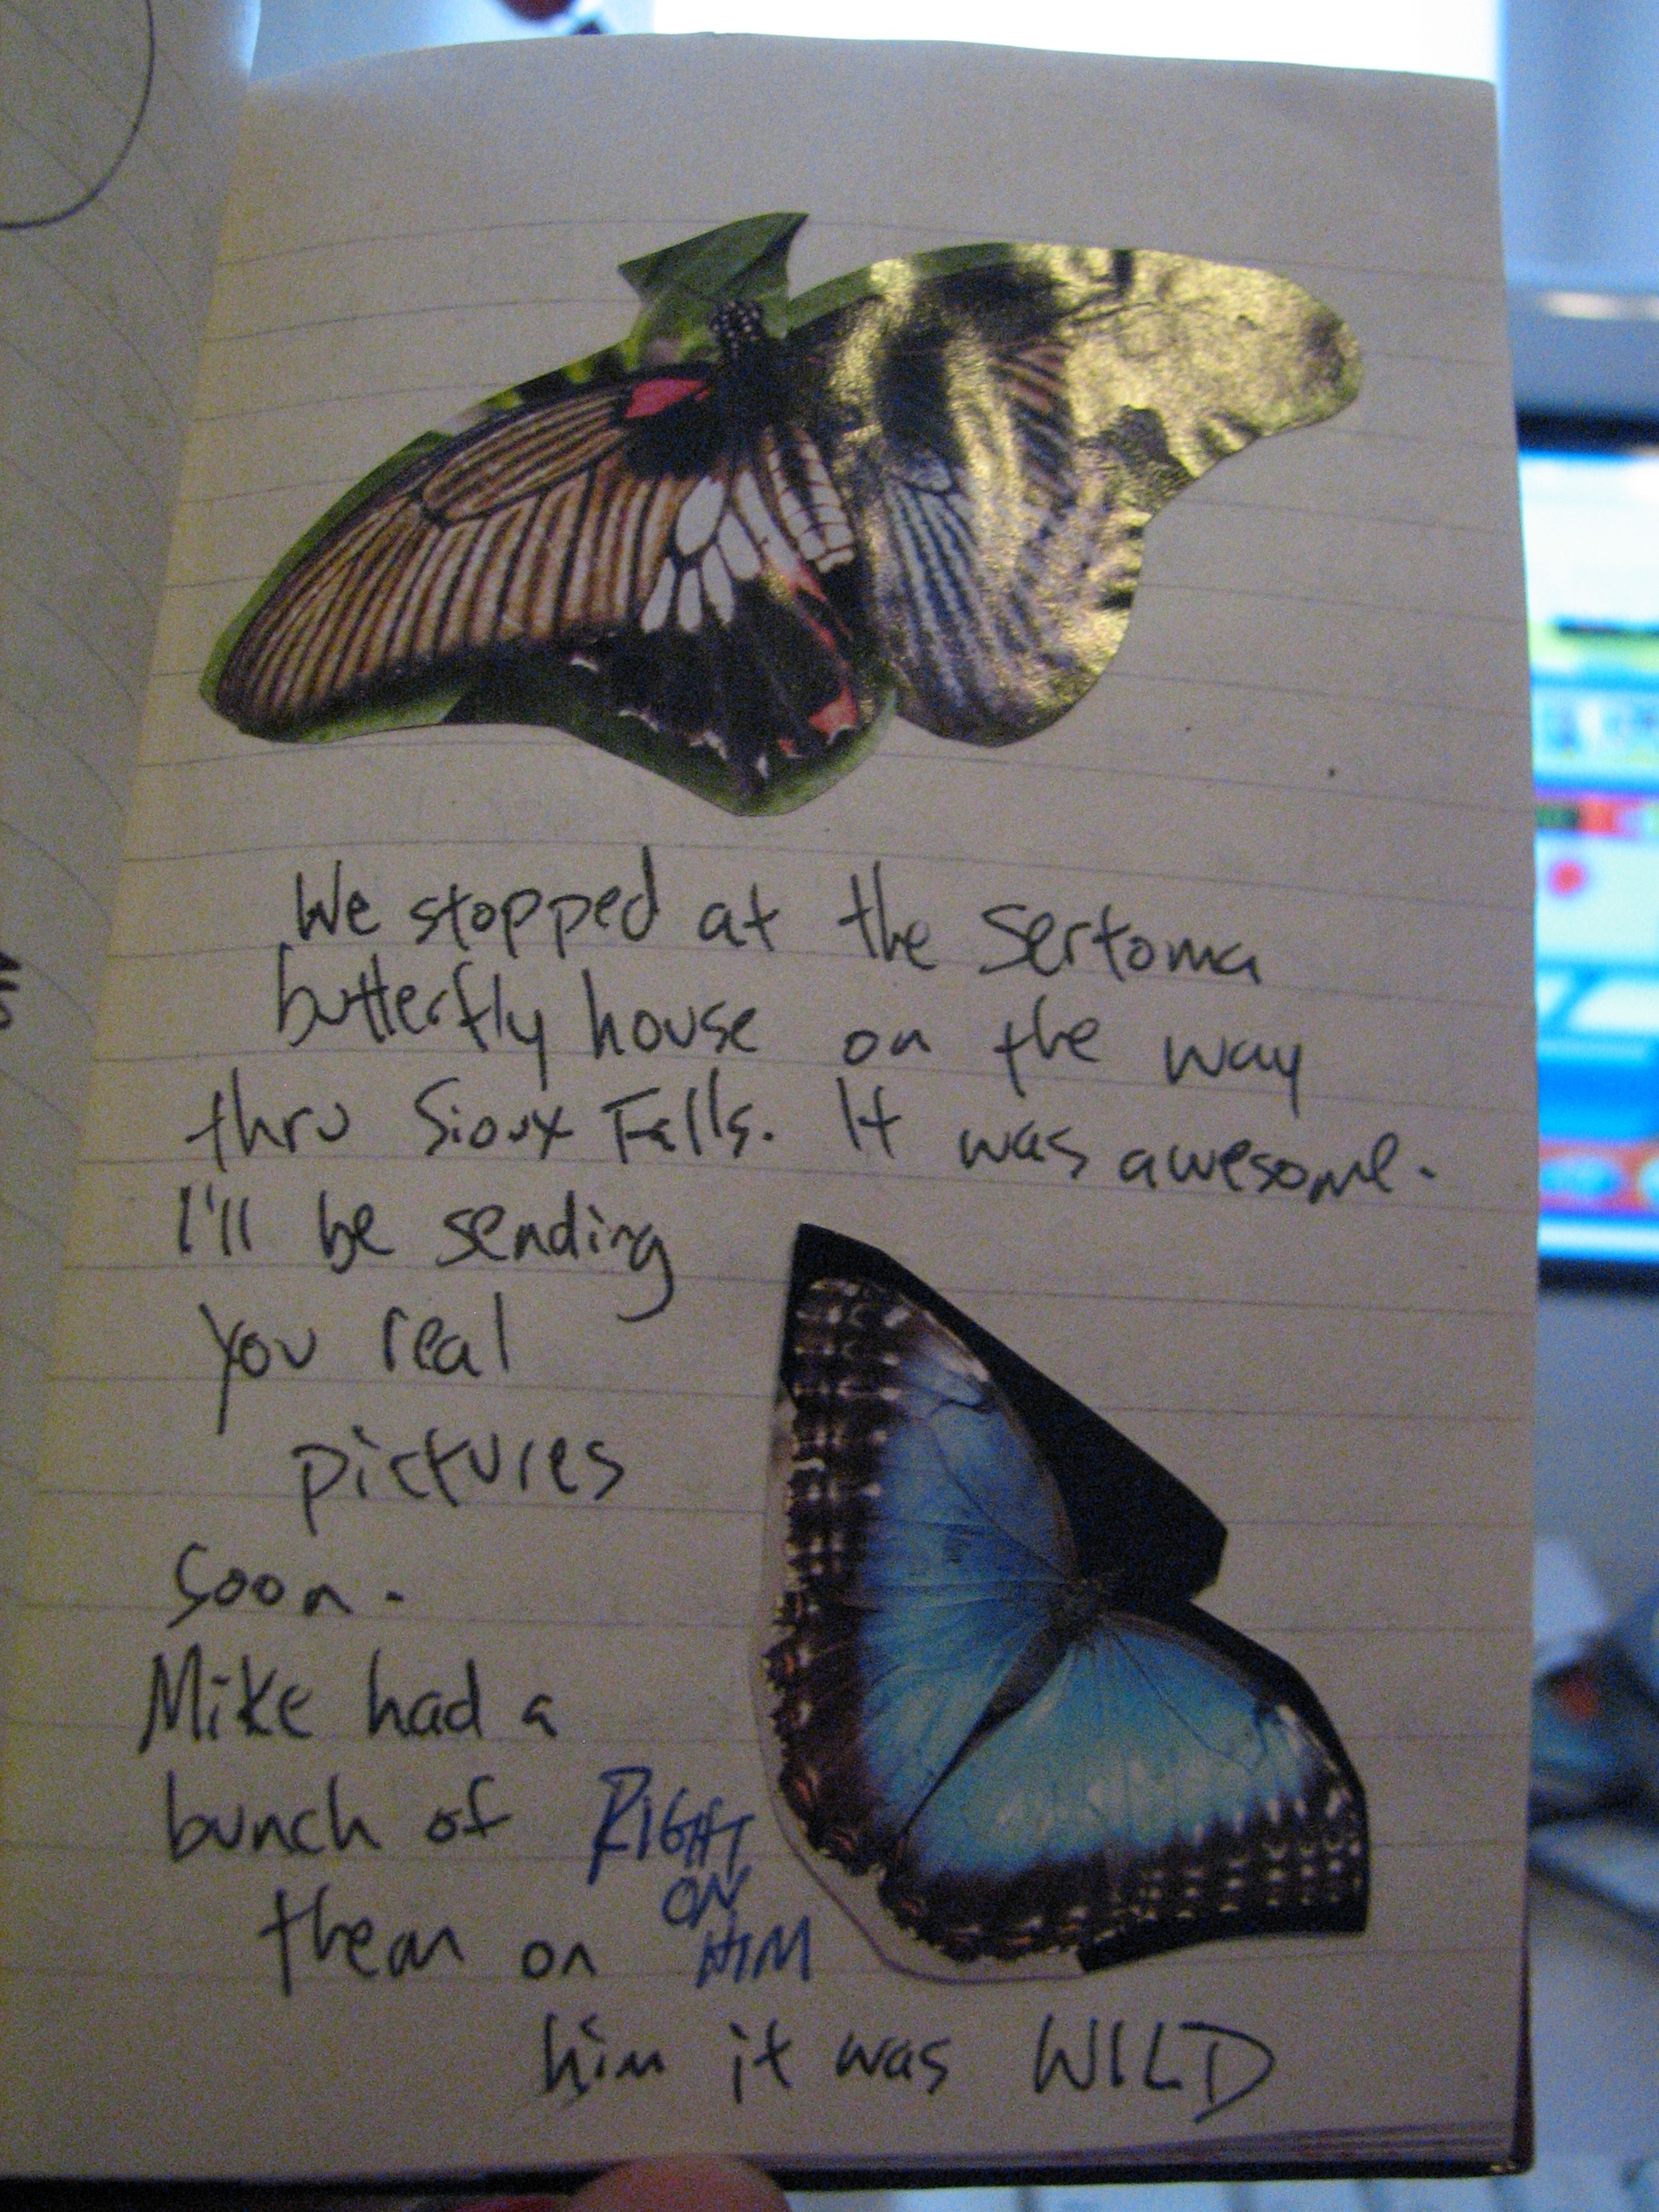 We stopped at the Sertoma
butterfly house on the way
thru Sioux Falls. It was awesome.
I'll be sending
you real
pictures
soon.
Mike had a
bunch of
them on
him it was WILD
RIGHT
ON
HIM